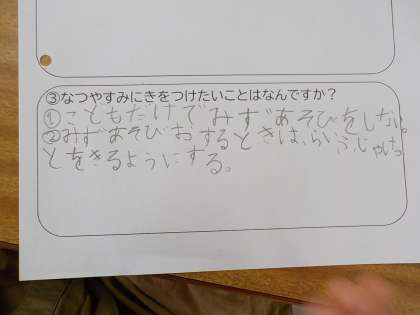 ③なつやすみにきをつけたいことはなんですか?
①こどもだけでみずあそびをしない。
②みずあそびおするときは、らいふじゃけっ
とをきるようにする。